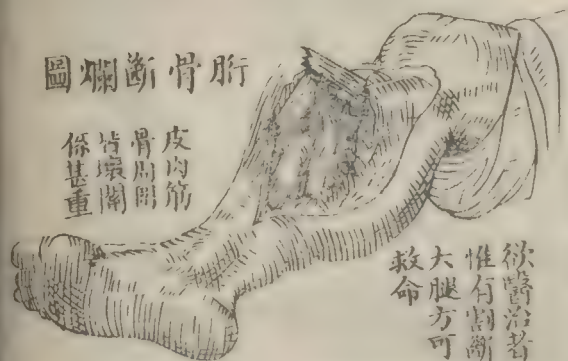 胻骨斷爛圖
皮肉筋
骨間
皆壞關
係甚重
欲醫治者
惟有割斷
大腿方可
救命